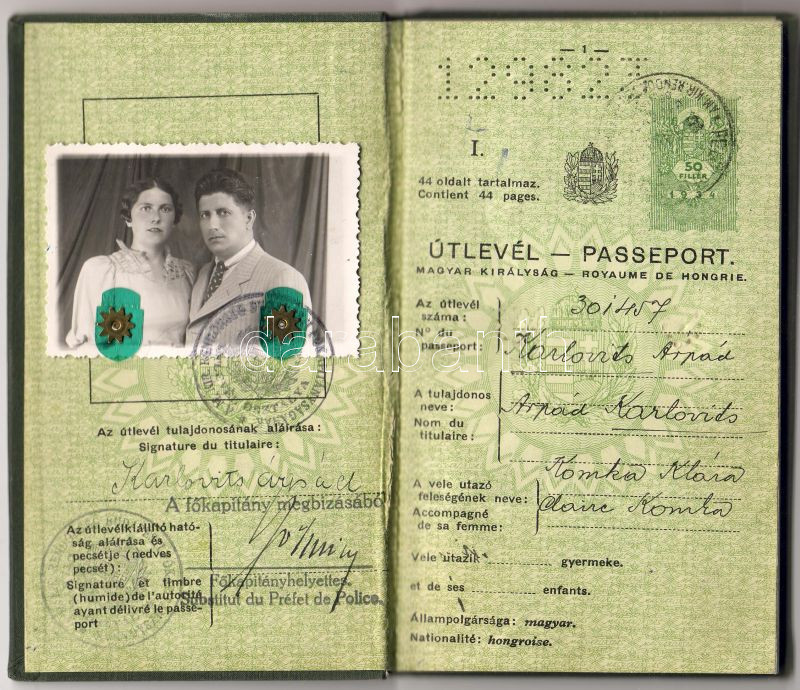 Az útlevél tulajdonosának aláírása:
Signature du titulaire:
Karlovits Árpád
A főkapitány megbizásából
Az útlevélkiállító ható-
ság aláírása és
pecsétje (nedves
pecsét):
Signature et timbre
(humide) de l'autorité
ayant délivré le passe-
port
Főkapitányhelyettes.
Substitut du Préfet de Police.
— 1 —
129627
I.
44 oldalt tartalmaz.
Contient 44 pages.
50
FILLÉR
1934
ÚTLEVÉL — PASSEPORT.
MAGYAR KIRÁLYSÁG — ROYAUME DE HONGRIE.
Az útlevél
száma:
No du
passeport:
301457
Karlovits Árpád
A tulajdonos
neve:
Nom du
titulaire:
Arpád Karlovits
A vele utazó
feleségének neve:
Accompagné
de sa femme:
Komka Klára
Claire Komka
Vele utazik gyermeke.
et de ses enfants.
Állampolgársága: magyar.
Nationalité: hongroise.
darabanth